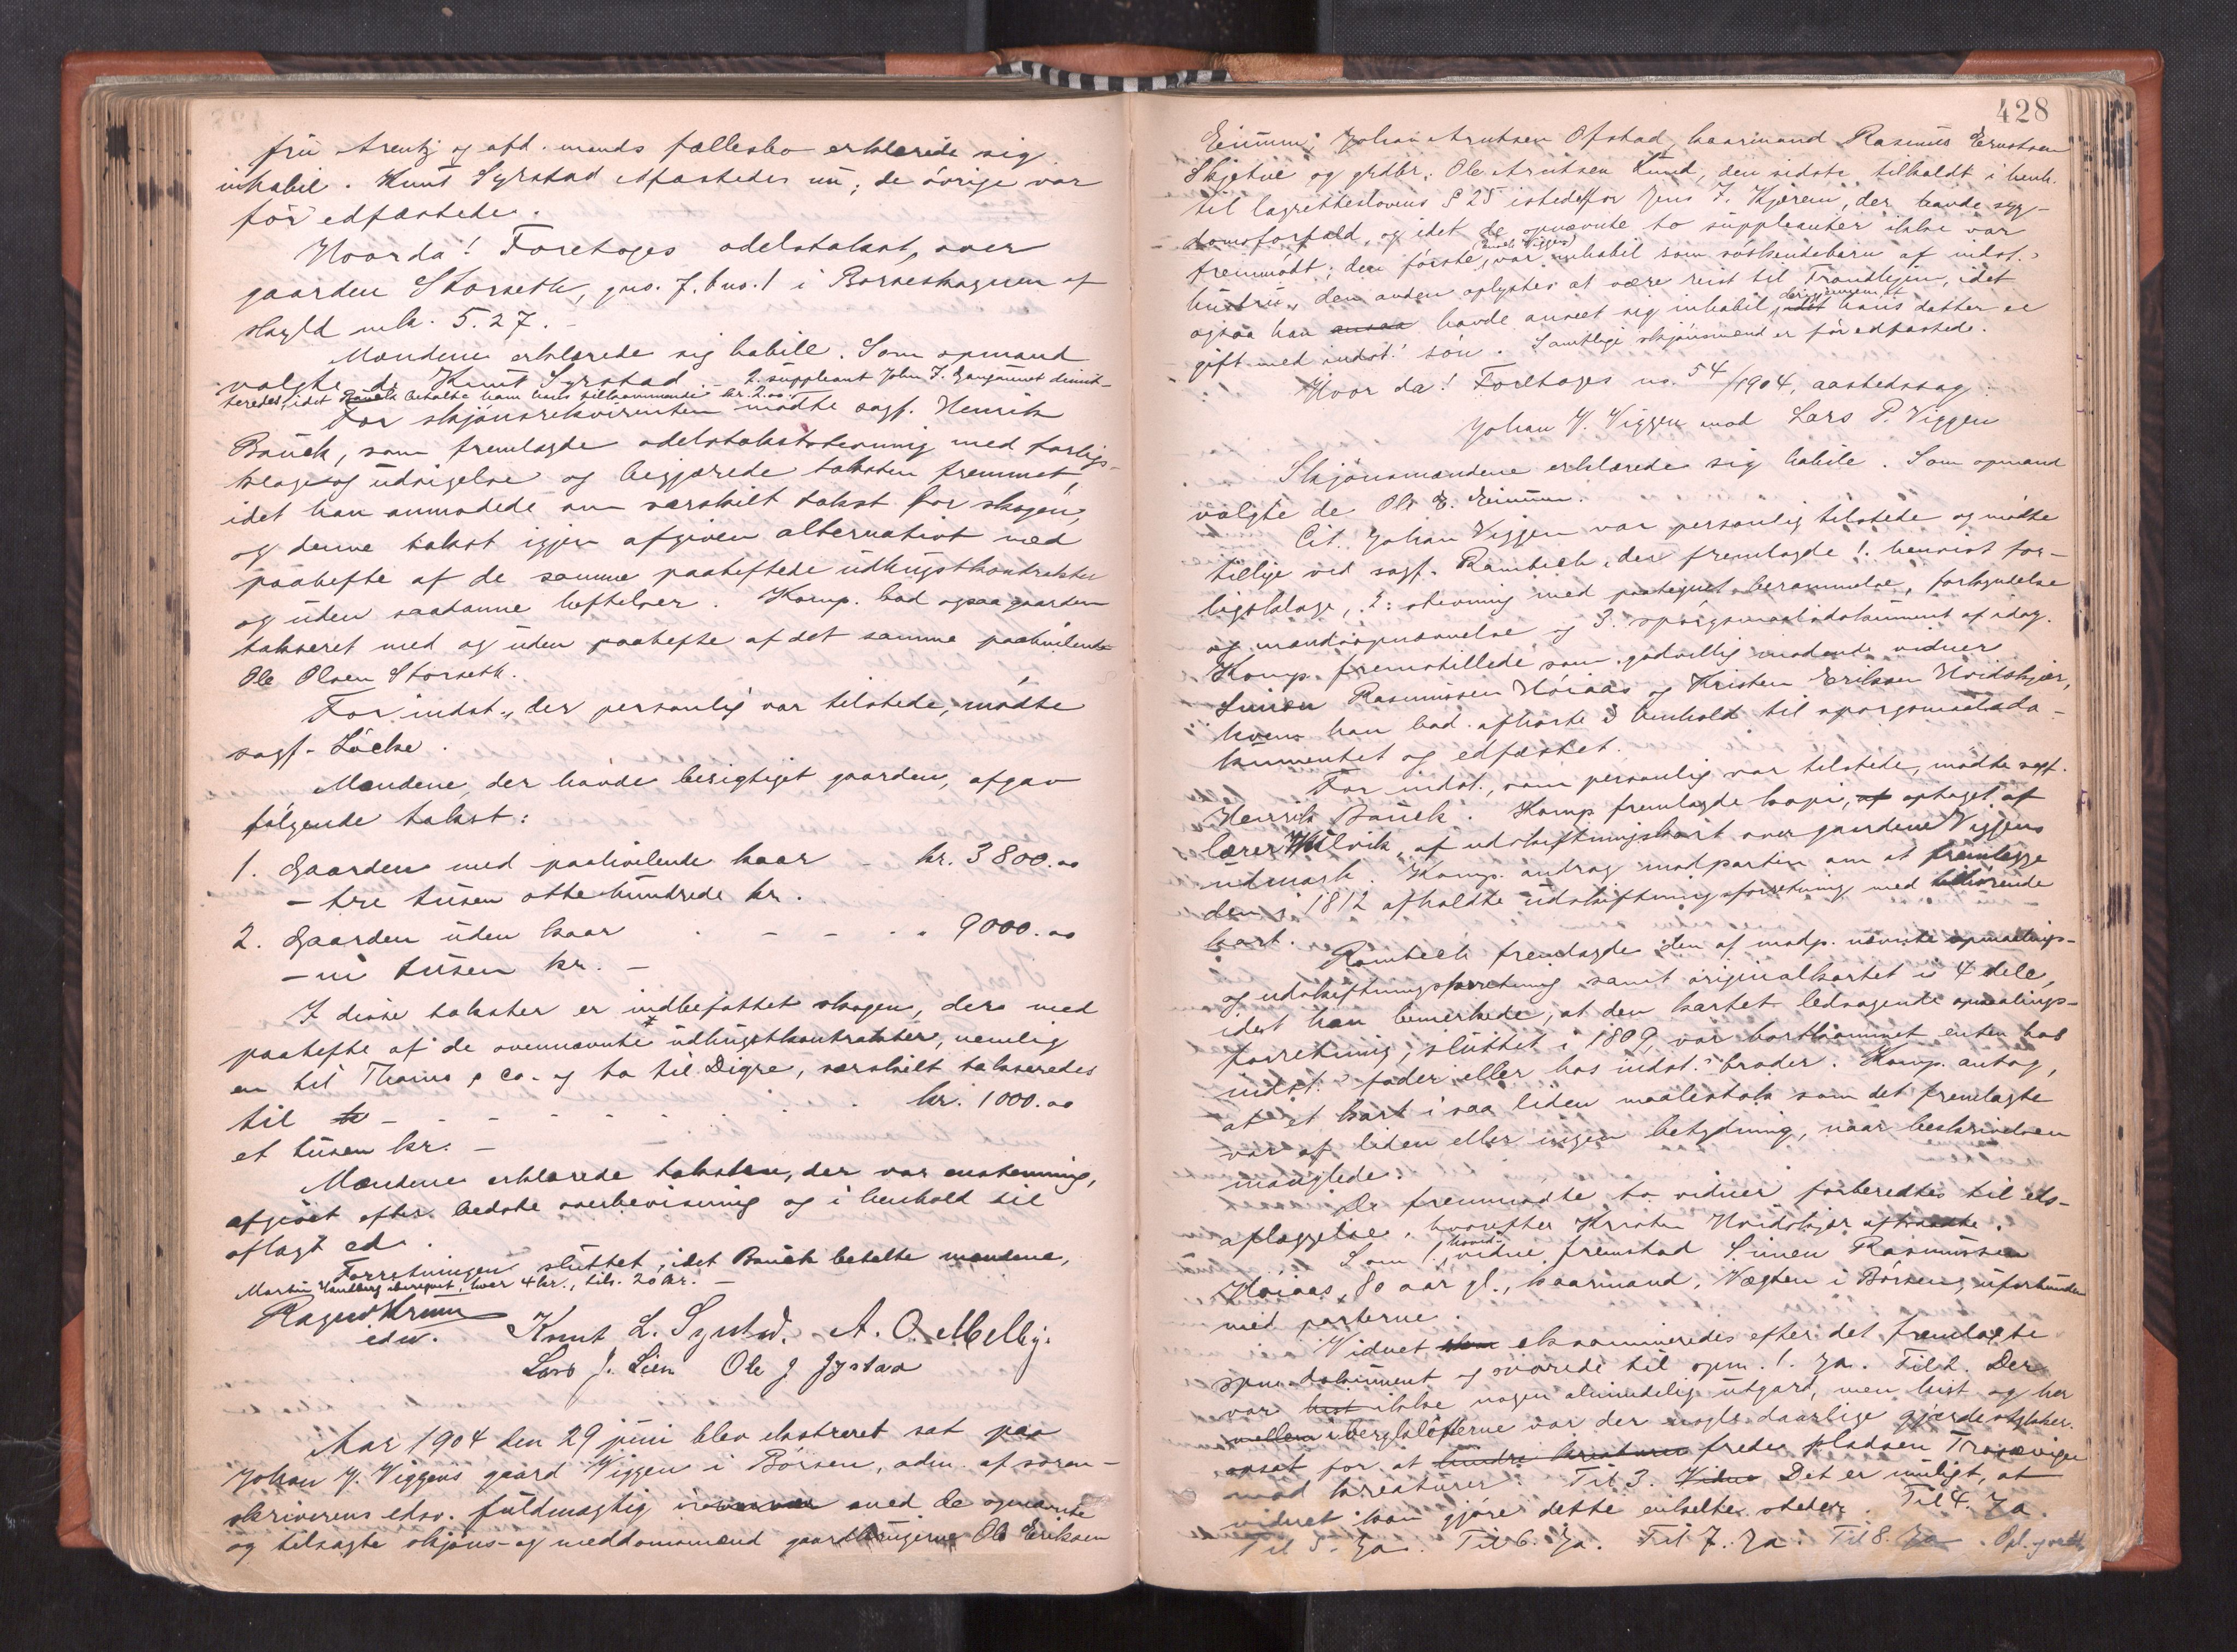 fru Arentz og afd. mands fællesbo erklærede sig
inhabil. Knut Syrstad edfæstedes nu; de övrige var
för edfæstede.
Hvorda! Foretoges odelstakst over
gaarden Storseth, gno. 7, bno. 1 i Börseskognen af
skyld mk. 5.27.
Mændene erklærede sig habile. Som opmand
valgte de Knut Syrstad. - 2. suppleant John J. Gangaunet dimit-
teredes, idet Bauck betalte ham hans tilkommende kr. 2.00.
For skjönsrekvirenten mödte sagf. Henrik
Bauck, som fremlagde odelstakststevning med forligs-
klage og udvigelse og begjærede taksten fremmet,
idet han anmodede om særskilt takst for skogen,
og denne takst igjen afgiven alternativt med
paahefte af de samme paaheftede udhugstkontrakter
og uden saadanne heftelser. Komp. bad ogsaa gaarden
takseret med og uden paahefte af det samme paahvilende
Ole Olsen Storseth.
For indst., der personlig var tilstede, mödte
sagf. Löcke.
Mændene, der havde besigtiget gaarden, afgav
fölgende takst:
1. Gaarden med paahvilende kaar - kr. 3800.00
- tre tusen otte hundrede kr.
2. Gaarden uden kaar - - - 9000.00
- ni tusen kr. -
I disse takster er indbefattet skogen, der med
paahefte af de ovennævnte udhugstkontrakter, nemlig
en til Thams & Co. og to til Digre, særskilt takseredes
til - - - - - kr. 1000.00
et tusen kr. -
Mændene erklærede taksten, der var enstemmig,
afgivet efter bedste overbevisning og i henhold til
aflagt ed.
Forretningen sluttet, idet Bauck betalte mændene,
Martin iberegnet, hver 4 kr., tils. 20 kr. -
Ragnv. Krum
edsv. Knut L. Syrstad. A. O. Melby.
Lars J. Lien Ole J Gystad
Aar 1904 den 29 juni blev ekstraret sat paa
Johan J. Viggens gaard Viggen i Börsen, adm. af soren-
skriverens edsv. fuldmægtig med de opnævnte
og tilsagte skjöns- og meddomsmænd gaardbrugerne Ole Eriksen
428
Eimum, Johan Arntsen Ofstad, kaarmand Rasmus Ernstsen
Skjetne og grdbr. Ole Arntsen Lund, den sidste tilkaldt i henh.
til lagrettesloven § 25 istedetfor Jens J. Kjæren, der havde syg-
domsforfald, og idet de opnævnte to suppleanter ikke var
fremmödt; den förste var inhabil som söskendebarn af indst.s
hustru, den anden oplystes at være reist til Trondhjem, idet
ogsaa han ansaa havde anseet sig inhabil, idet hans datter er
gift med indst.s sön. Samtlige skjönsmænd er för edfæstede.
Hvor da! Foretoges no. 54/1904, aastedssag:
Johan J. Viggen mod Lars P. Viggen
Skjönsmændene erklærede sig habile. Som opmand
valgte de Ole E. Eimum.
Cit. Johan Viggen var personlig tilstede og mödte
tillige ved sagf. Rambech, der fremlagde 1. henvist for-
ligsklage, 2: stevning med paategnet berammelse, forkyndelse
og mandsopnævnelse og 3. spörgsmaalsdokument af idag.
Komp. fremstillede som godvillig mödende vidner
Simen Rasmussen Höiaas og Kristen Eriksen Hvidskjær,
hvem han bad afhörte i henhold til spörgsmaalsdo-
kumentet og edfæstet.
For indst., som personlig var tilstede, mödte sagf.
Henrik Bauck. Komp. fremlagde kopi, af optaget af
lærer Hulvik, af udskiftningskart over gaardene Viggens
udmark. Komp. androg modparten om at fremlægge
den i 1812 afholdte udskiftningsforretning med tilhörende
kart.
Rambech fremlagde den af modp. nævnte opmaalings-
og udskiftningsforretning samt originalkartet i 4 dele,
idet han bemerkede, at den kartet ledsagende opmaalings-
forretning, sluttet i 1809, var bortkommet enten hos
indst.s fader eller hos indst.s broder. Komp. antog,
at et kart i saa liden maalestok som det fremlagte
var af liden eller ingen betydning, naar beskrivelsen
manglede.
De fremmödte to vidner forberedtes til eds-
aflæggelse, hvorefter Kristen Hvidskjær aftraadte.
Som 1. vidne fremstod Simen Rasmussen
Höiaas, 80 aar gl., kaarmand, Vægten i Börsen, uforbunden
med parterne.
Vidnet eksamineredes efter det fremlagte
spm.dokument og svarede til spm. 1. Ja. Til 2. Der
var hist ikke nogen almindelig utgard, men hist og her
mellem i bergklöfterne var der nogle daarlige gjærdestykker
opsat for at hindre kreaturer frede pladsen Trasavigen
mod kreaturer. Til 3. Vidne Det er muligt, at
vidnet kan gjöre dette enkelte steder. Til 4. Ja.
Til 5. Ja. Til 6. Ja. Til 7. Ja. Til 8. Ja. Opl.